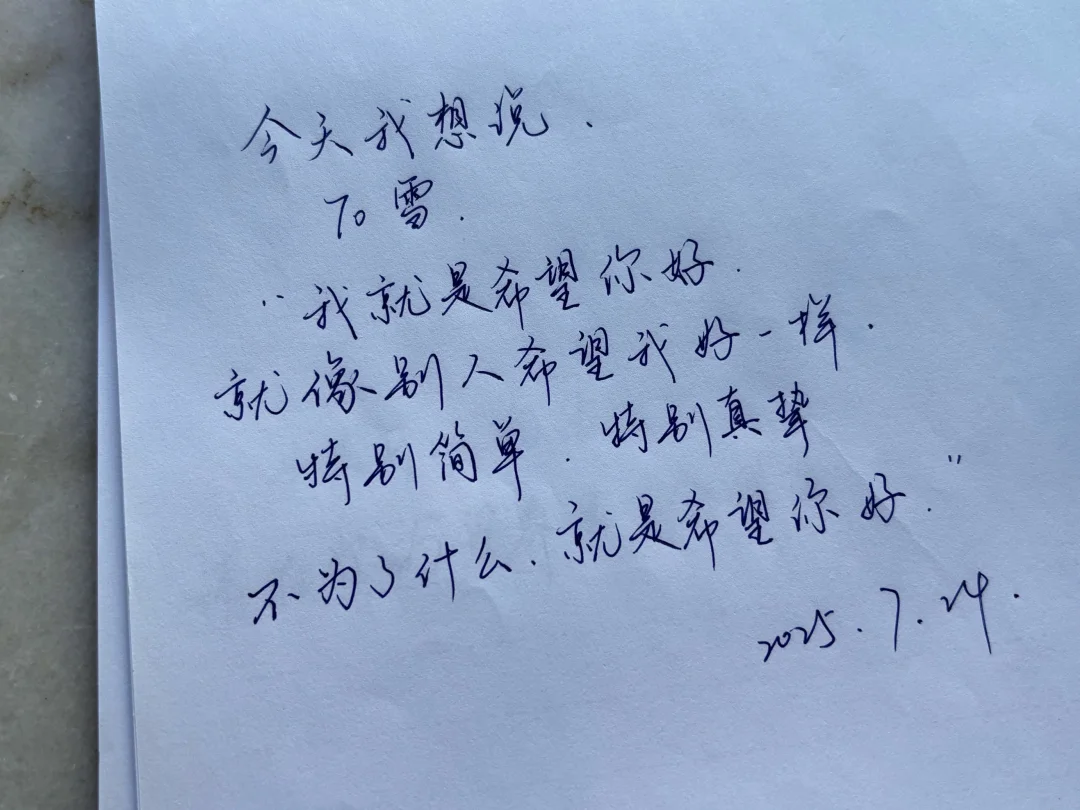 今天我想说.
To 雪.
"我就是希望你好.
就像别人希望我好一样.
特别简单.特别真挚
不为了什么.就是希望你好."
2025.7.24.